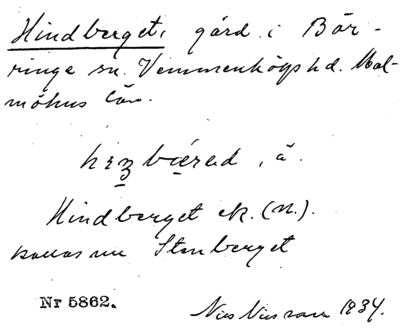 Hindberget, gård i Bör-
ringe sn. Vemmenhögs hd. Mal-
möhus län.
, å.
Hindberget ek. (n.).
kallas nu Stenberget
Nr 5862.
Nils Nilsson 1934.